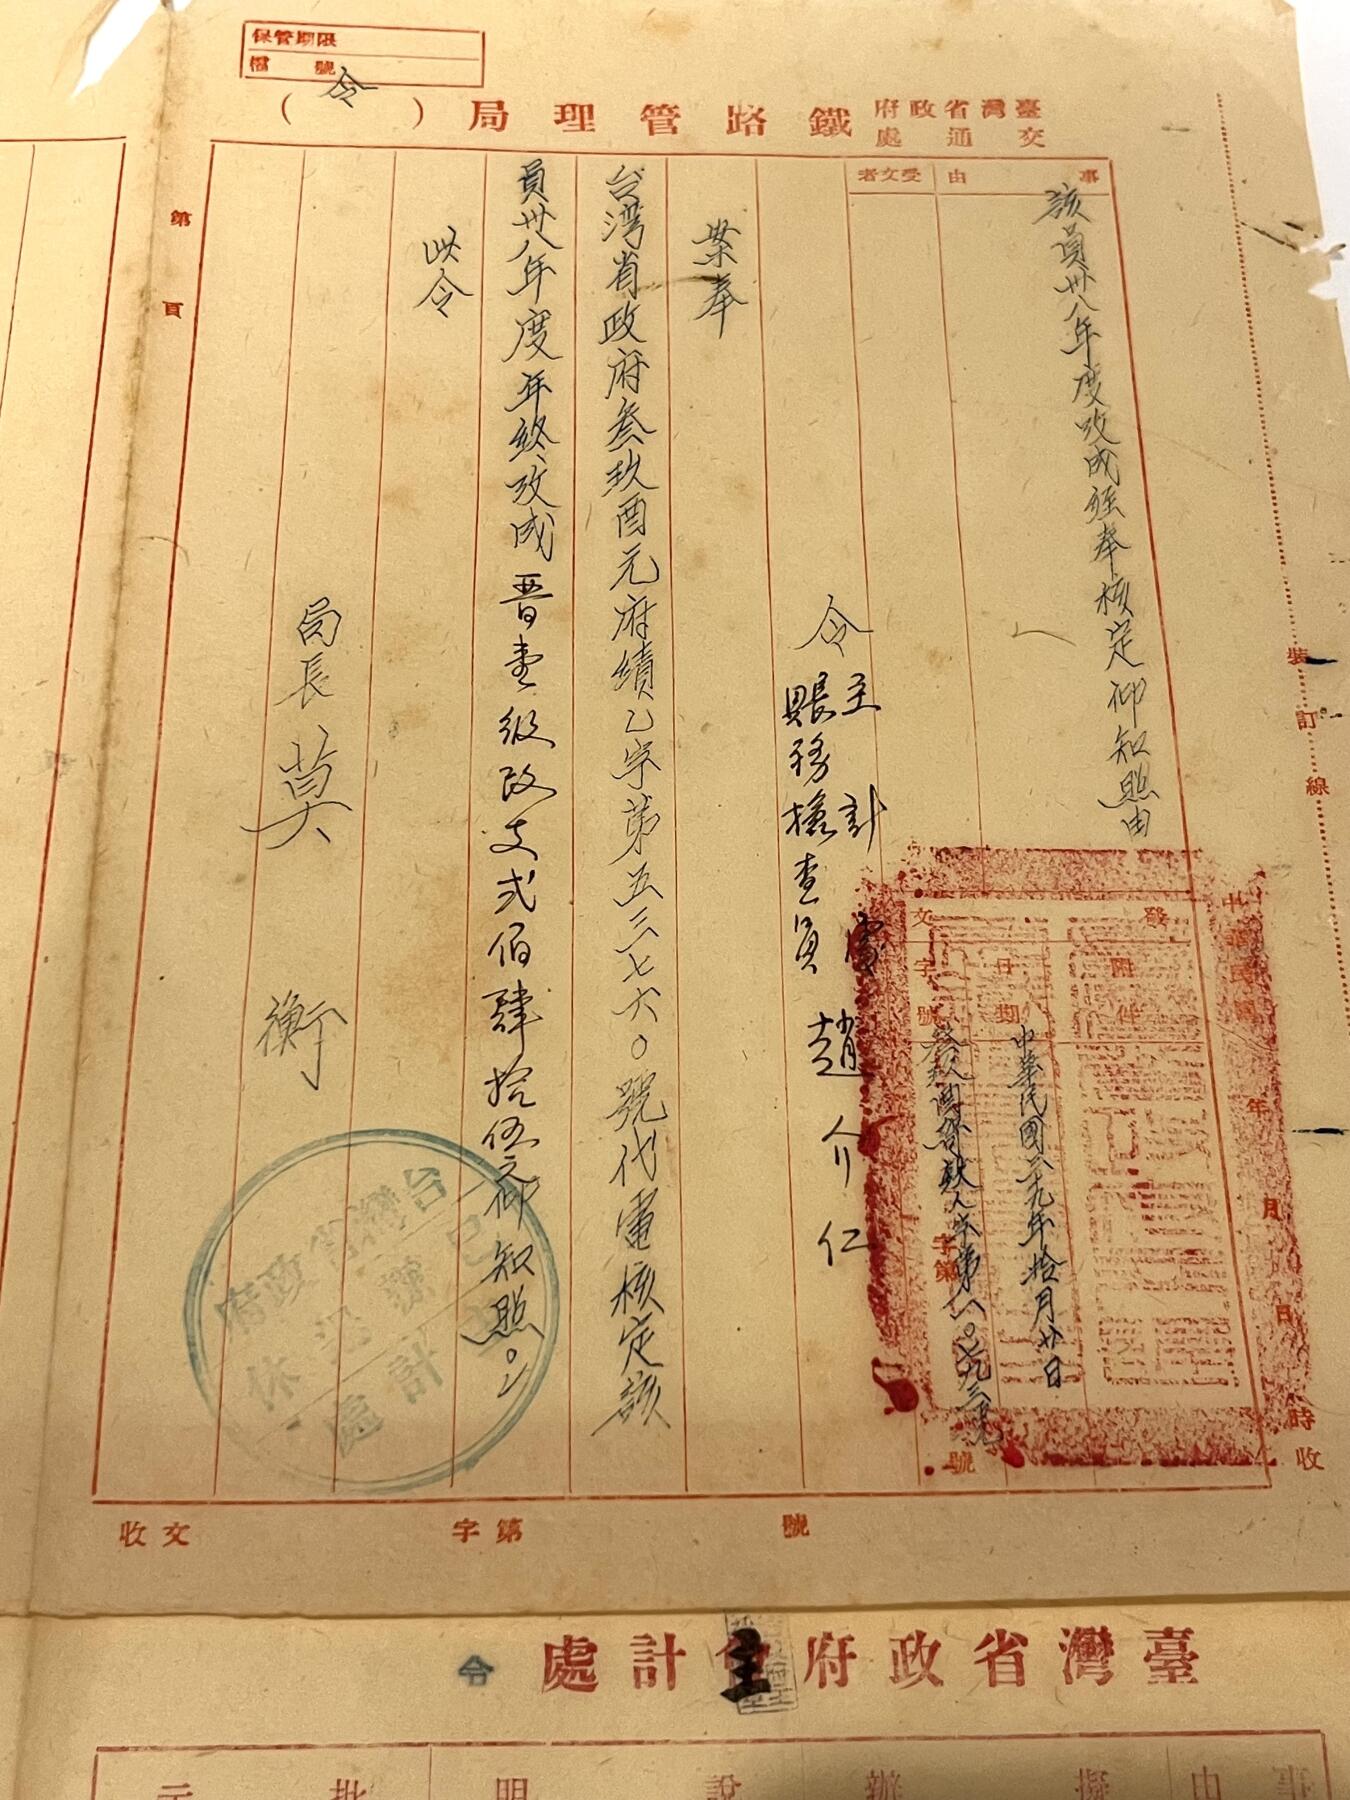 保管期限
檔號
臺灣省政府交通處
鐵路管理局（令）
事由
該員卅八年度攷成經奉核定仰知照由
受文者
中華民國 年 月 日 時收
發文
附件
日期
中華民國三九年拾月廿日
字號
字第 號
令
主計處
賬務檢查員 趙介仁
案奉
台湾省政府叁玖酉元府績乙字第五三七六〇號代電核定該
員卅八年度年終攷成晋壹級改支弍佰肆拾伍元仰知照。
此令
局長 莫衡
第 頁
裝訂線
收文 字第 號
臺灣省政府主計處 令
事由 擬辦 說明 批示